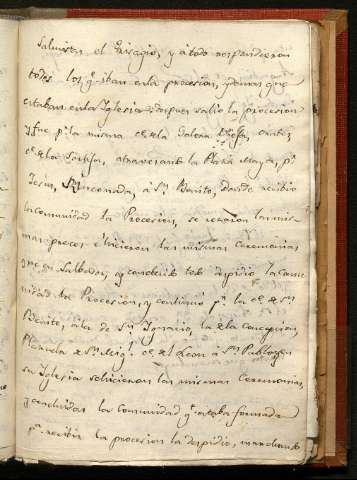 Salmistas el Trisagio, y á todo respondieron
todos los q.e iban en la procesion, y demas que
estaban en la Iglesia: despues salio la procesion
y fue p.r la misma c.e de la
c.e de los atravesando la Plaza Mayor, p.r
Jesus, Rinconada, á S.n Benito, donde recibio
la comunidad la Procesion, se rezaron las mis-
mas preces é hicieron las mismas ceremonias
q.e en S.n Salvador, y concluido todo despidio la comu-
nidad la Procesion, y continuó p.r la c.e de S.n
Benito, a la de S.n Ignacio, la de la Concepcion,
Plazuela de S.n Mig.l c.e de Leon á S.n Pablo, y en
su Iglesia se hicieron las mismas ceremonias,
y concluidas la comunidad q.e estaba formada
p.a recibir la procesion la despidio, marchando